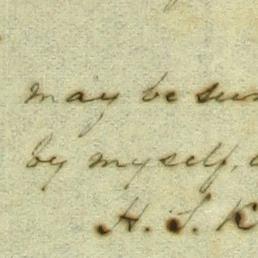 may be
by myself,
H. S. K